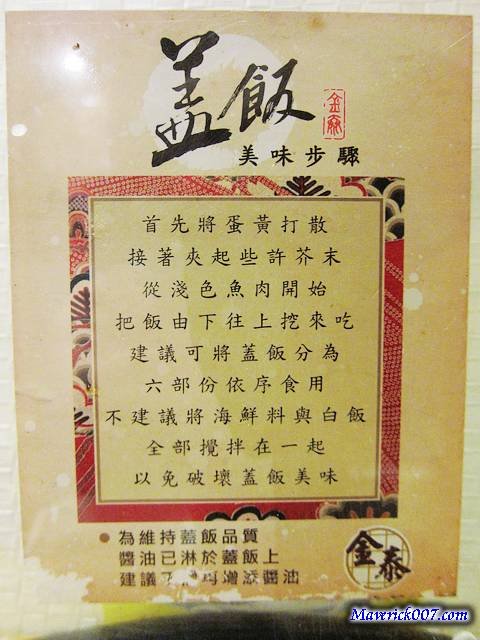 盖飯
金泰
美味步驟
首先將蛋黃打散
接著夾起些許芥末
從淺色魚肉開始
把飯由下往上挖來吃
建議可將蓋飯分為
六部份依序食用
不建議將海鮮料與白飯
全部攪拌在一起
以免破壞蓋飯美味
●為維持蓋飯品質
醬油已淋於蓋飯上
建議不再增添醬油
金泰
Maverick007.com